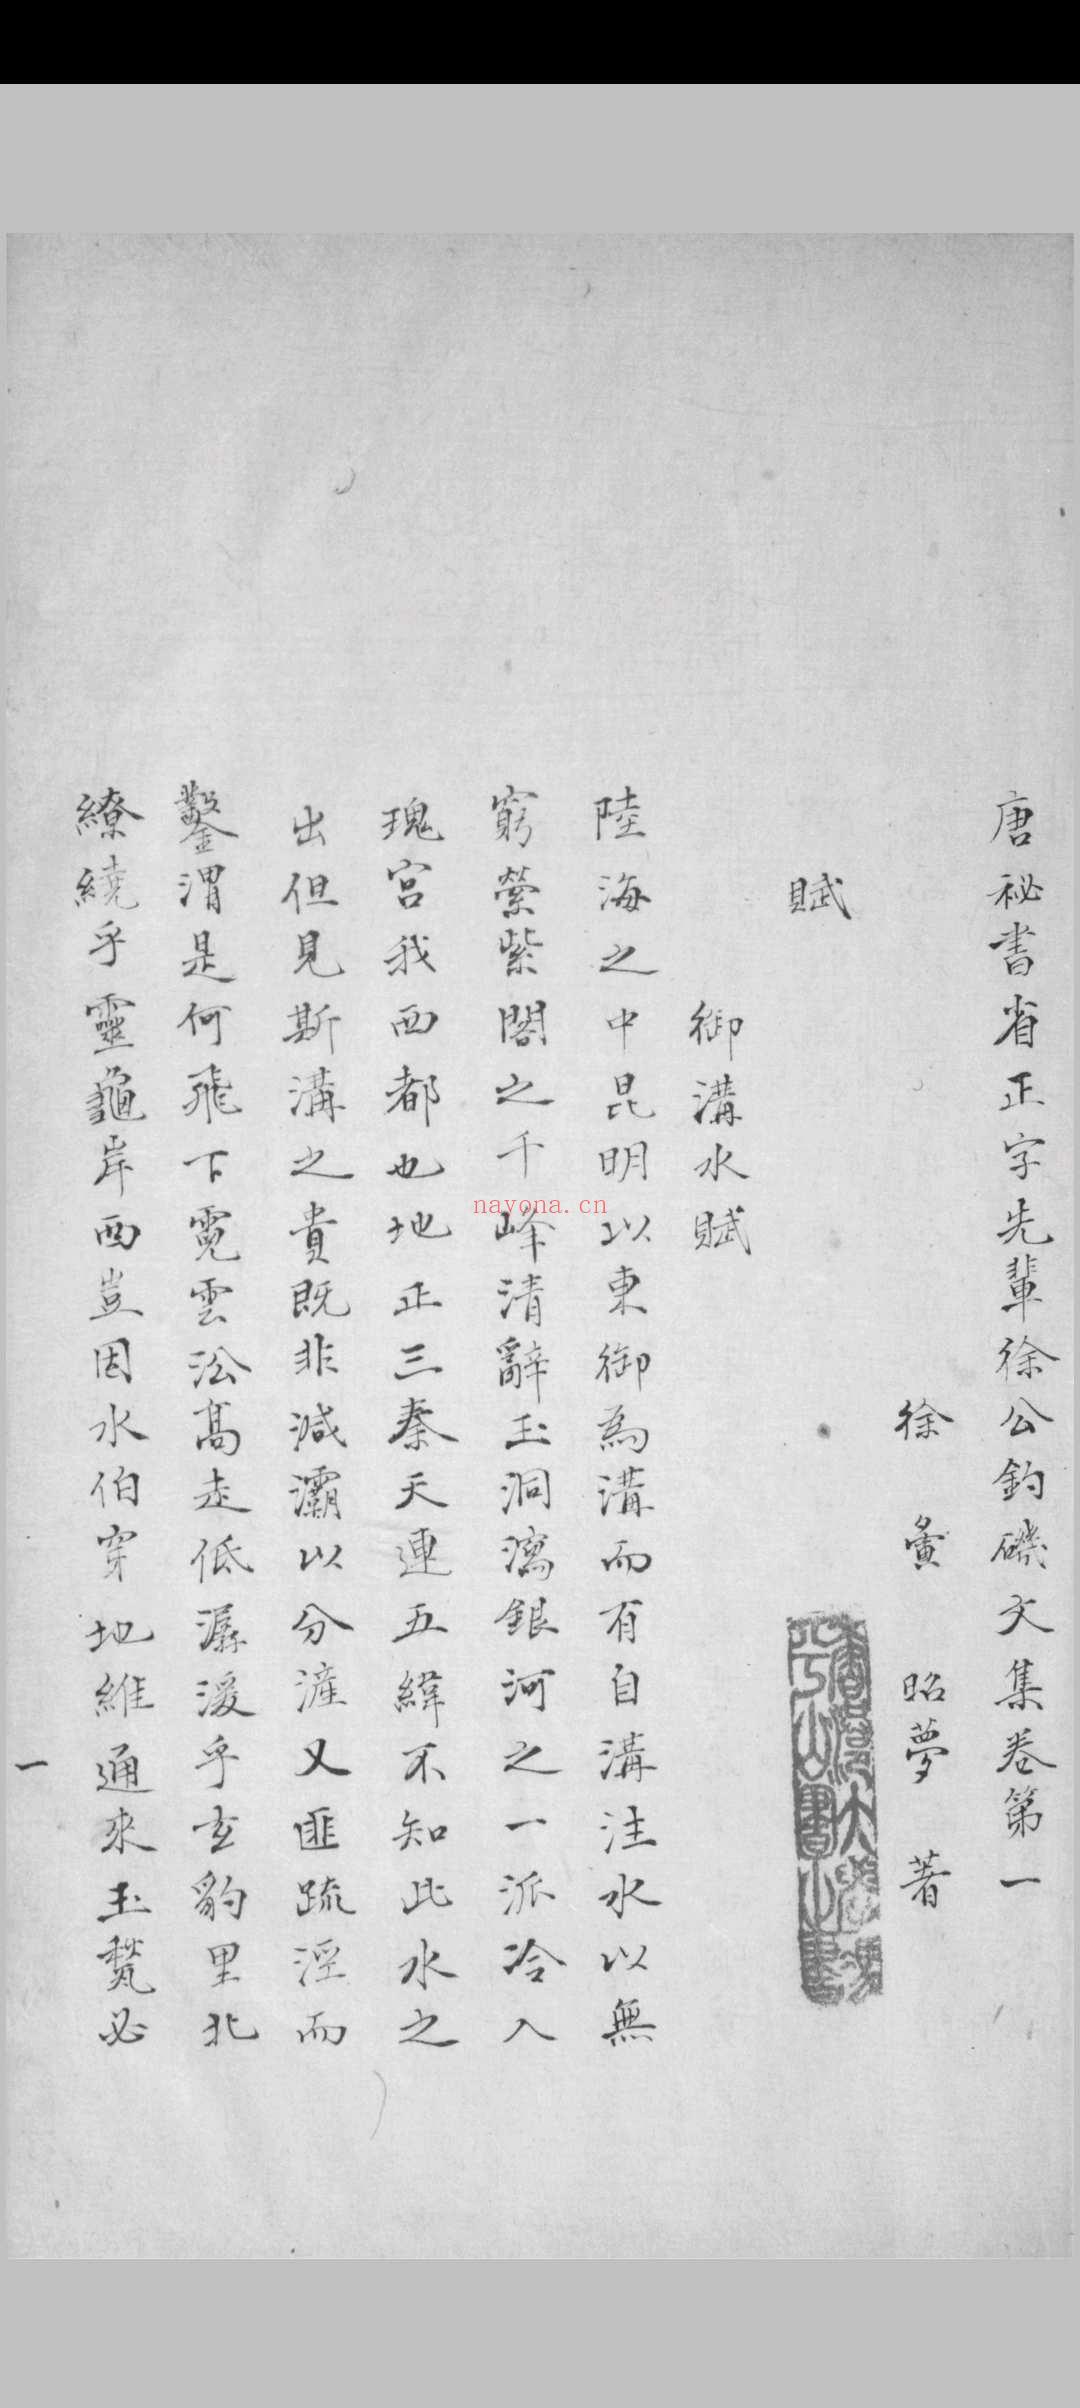 唐祕書省正字先輩徐公釣磯文集卷第一
徐夤昭夢著
賦
御溝水賦
陸海之中昆明以東御為溝而有自溝注水以無
窮縈紫閣之千峰清辭玉洞瀉銀河之一派冷入
瑰宮我西都也地正三秦天連五緯不知此水之
出但見斯溝之貴既非減灞以分滻又匪疏涇而
鑿渭是何飛下霓雲沿高走低潺湲乎玄豹里北
繚繞乎靈龜岸西豈因水伯穿地維通來玉甃必
一
nayona.cn